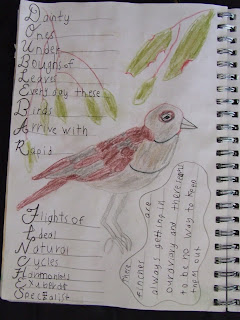 Danty
Ones
Under
Boughs of
Leaves
Every day these
Birds
Arrive with
Rapid
Flights of
Ideal
Natural
Cycles
Specialise
These
finches are
always getting in
to be no way to keep
them out